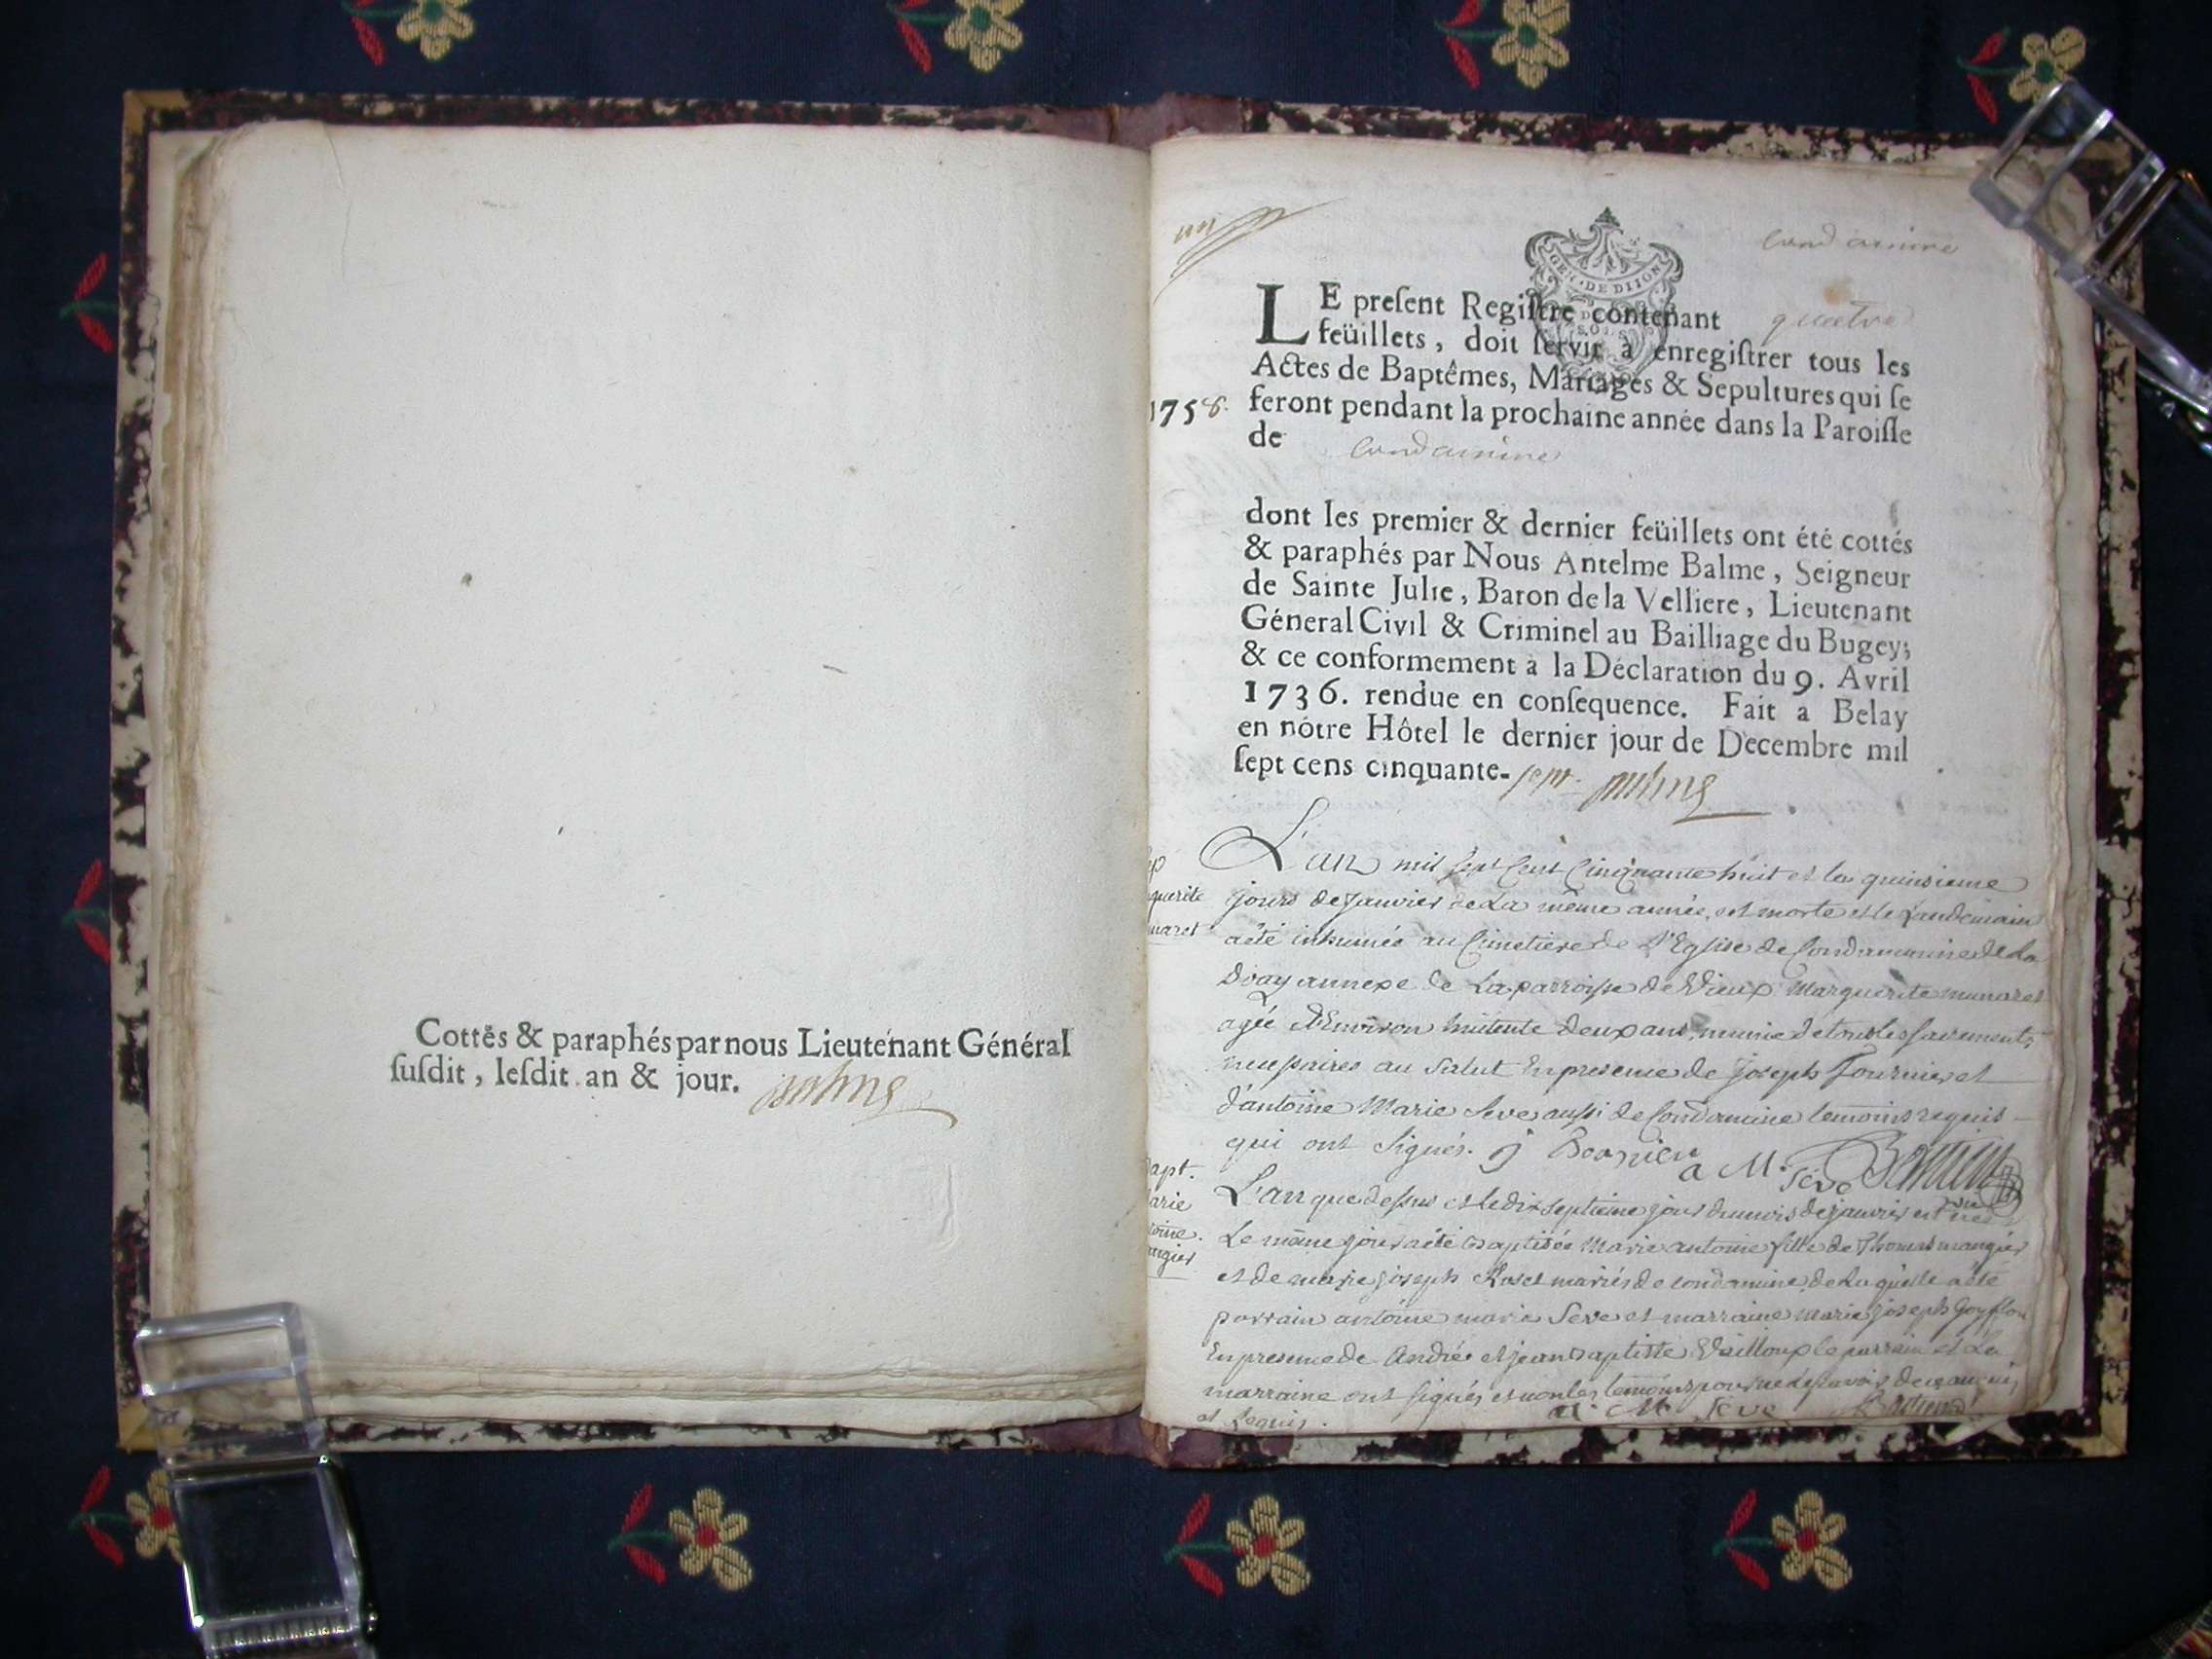 Cottés & paraphés par nous Lieutenant Général
susdit, lesdit an & jour. Balme
un
Condamine
GEN. DE DIJON
LE preſent Regiſtre contenant quatre
feüillets, doit ſervir à enregiſtrer tous les
Actes de Baptêmes, Mariages & Sepultures qui ſe
1758. feront pendant la prochaine année dans la Paroiſſe
de Condamine
dont les premier & dernier feüillets ont été cottés
& paraphés par Nous Antelme Balme, Seigneur
de Sainte Julie, Baron de la Velliere, Lieutenant
Géneral Civil & Criminel au Bailliage du Bugey;
& ce conformement à la Déclaration du 9. Avril
1736. rendue en conſequence. Fait a Belay
en nôtre Hôtel le dernier jour de Decembre mil
ſept cens cinquante-sept. Balme
L'an mil sept Cent Cinquante huit et le quinsieme
jours de Janvier de La même année, est morte et le Landemain
aété inhumée au Cimetiere de L'Eglise de Condamine de la
Doay annexe de La parroisse de Vieux Marguerite munaret
agée d'Environ deux ans, munie de tous les sacrements
necessaires au Salut En presence de joseph et
d'antoine Marie Seve aussi de Condamine temoins requis
qui ont Signés. a M. Seve
L'an que dessus et le dix septieme jour du mois de janvier est née
Le même jour aété Baptisée Marie antoine fille de Thomas mangier
et de marie joseph mariés de condamine, de Laquelle aété
parrain antoine marie Seve et marraine marie joseph
En presence de André et jean Baptiste Le parrain et La
marraine ont signés et non les temoins pour ne Le savoir de ce enquis
et Requis. a. M. Seve